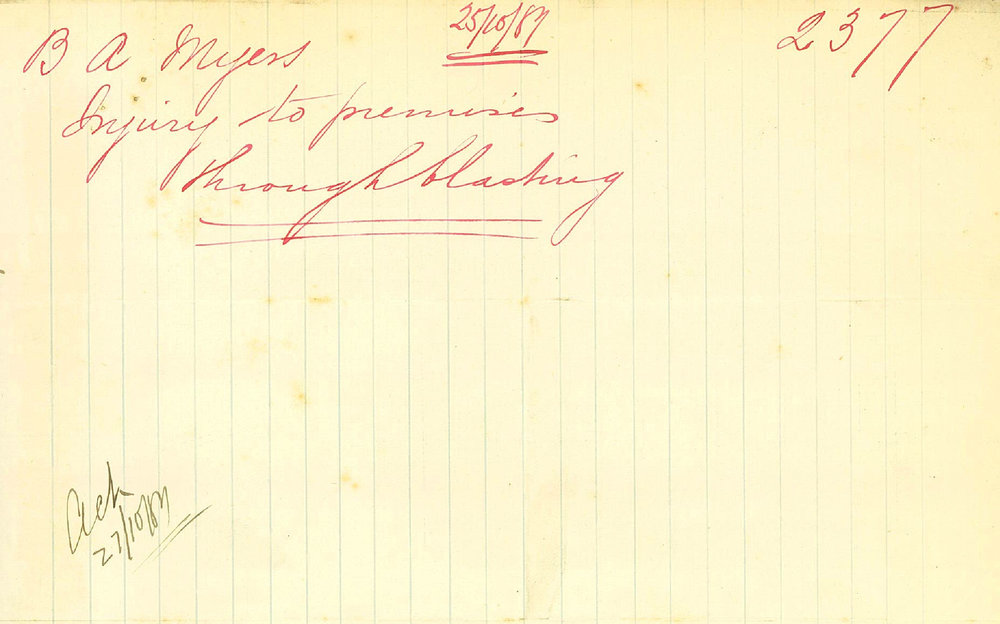 25/10/87
2377
B A Myers
Injury to premises
through blasting
Ack
27/10/87